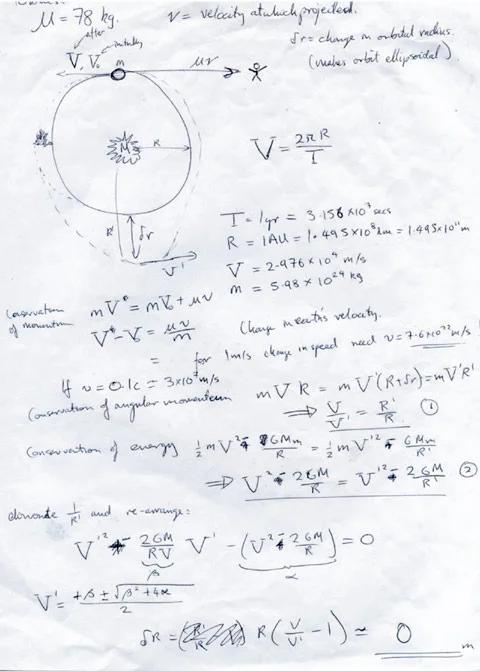 μ = 78 kg.
v = velocity at which projected.
δr = change in orbital radius.
(makes orbit ellipsoidal)
after
initially
V, V₀
m
μv
M
R
V = 2πR / T
R'
δr
V'
T = 1yr = 3.156 × 10⁷ secs
R = 1AU = 1.495 × 10⁸ km = 1.495 × 10¹¹ m
V = 2.976 × 10⁴ m/s
m = 5.98 × 10²⁴ kg
Conservation of momentum
mV = mV₀ + μv
V - V₀ = μv / m
Change in earth's velocity.
= for 1m/s change in speed need v = 7.6 × 10²² m/s !
If v = 0.1c = 3×10⁷ m/s
Conservation of angular momentum
m V R = m V'(R+δr) = m V'R'
⇒ V / V' = R' / R ①
Conservation of energy ½ m V² - GMm / R = ½ m V'² - GMm / R'
⇒ V² - 2GM / R = V'² - 2GM / R' ②
eliminate 1/R' and re-arrange:
V'² - 2GM / RV V' - (V² - 2GM / R) = 0
β
α
V' = +β ± √β² + 4α / 2
δR = R (V / V' - 1) ≃ 0 m